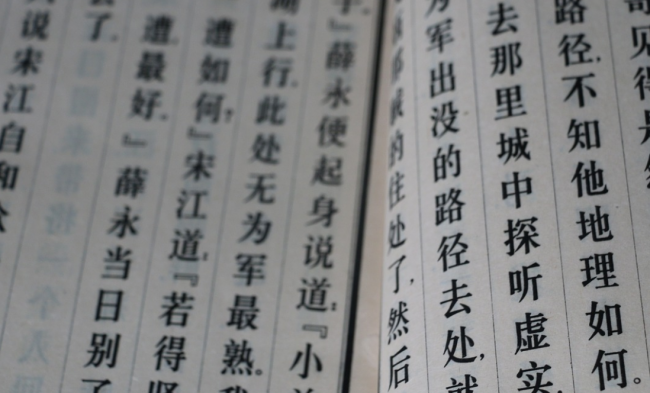 见得
路径,不知他地理如何。
去那里城中探听虚实
为军出没的路径去处,就
的住处了,然后
』薛永便起身说道:『小
湖上行。此处无为军最熟。我
遭如何?』宋江道:『若得贤
遭最好。』薛永当日别了
了。
说宋江自和众